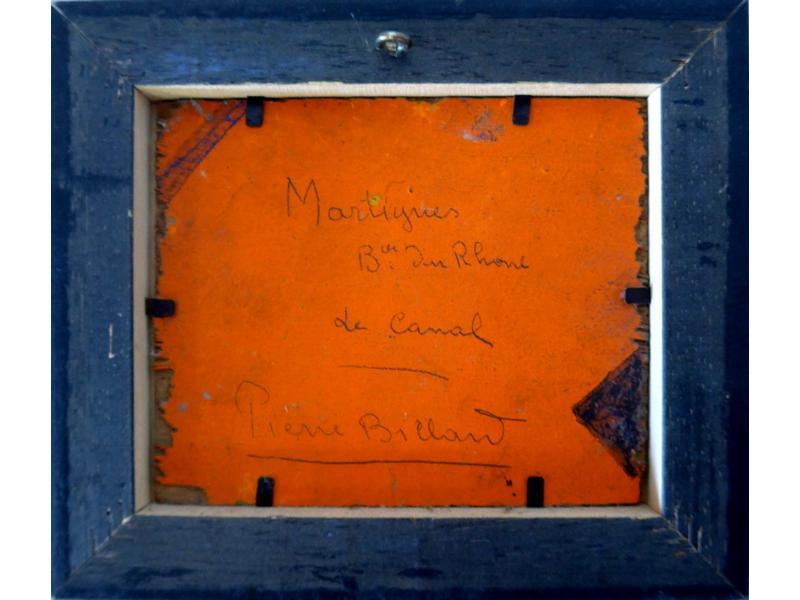 Martigues
Bches Du Rhone
Le Canal
Pierre Billard